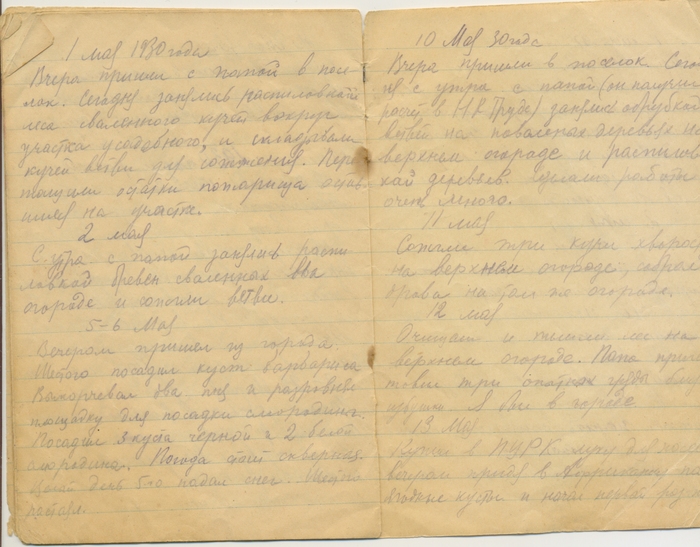 1 мая 1930 года
Вчера пришли с папой в посе-
лок. Сегодня занялись распиловкой
леса сваленного кучей вокруг
участка усадебного, и складывали
кучей ветви для сожжения. Пере
тащили остатки пожарища
на участке.
2 мая
С утра с папой занялись распи
ловкой бревен сваленных
огороде и сожгли ветви.
5-6 Мая
Вечером пришел из города
посадил куст барбариса
Выкорчевал два пня и разровнял
площадку для посадки смородины.
Посадил 9 куста черной и 2 белой
смородины. Погода стоит скверная
день 5-го падал снег.
10 Мая 30 года
Вчера пришли в поселок Сего
с утра с папой (он получил
расчет в Н.К.Труда) занялись обрубкой
ветвей на поваленых деревьях на
верхнем огороде и распилов
кой деревьев. сделали работы
очен много.
11 мая
Сожгли три кучи хворост
на верхнем огороде, собрал
дрова на том же огороде.
12 мая
Очищал и лес на
верхнем огороде. Папа приго
товил три груды
избушки. Я был в городе
13 Мая
в для
вечером придя в
ягодные кусты и начал первой